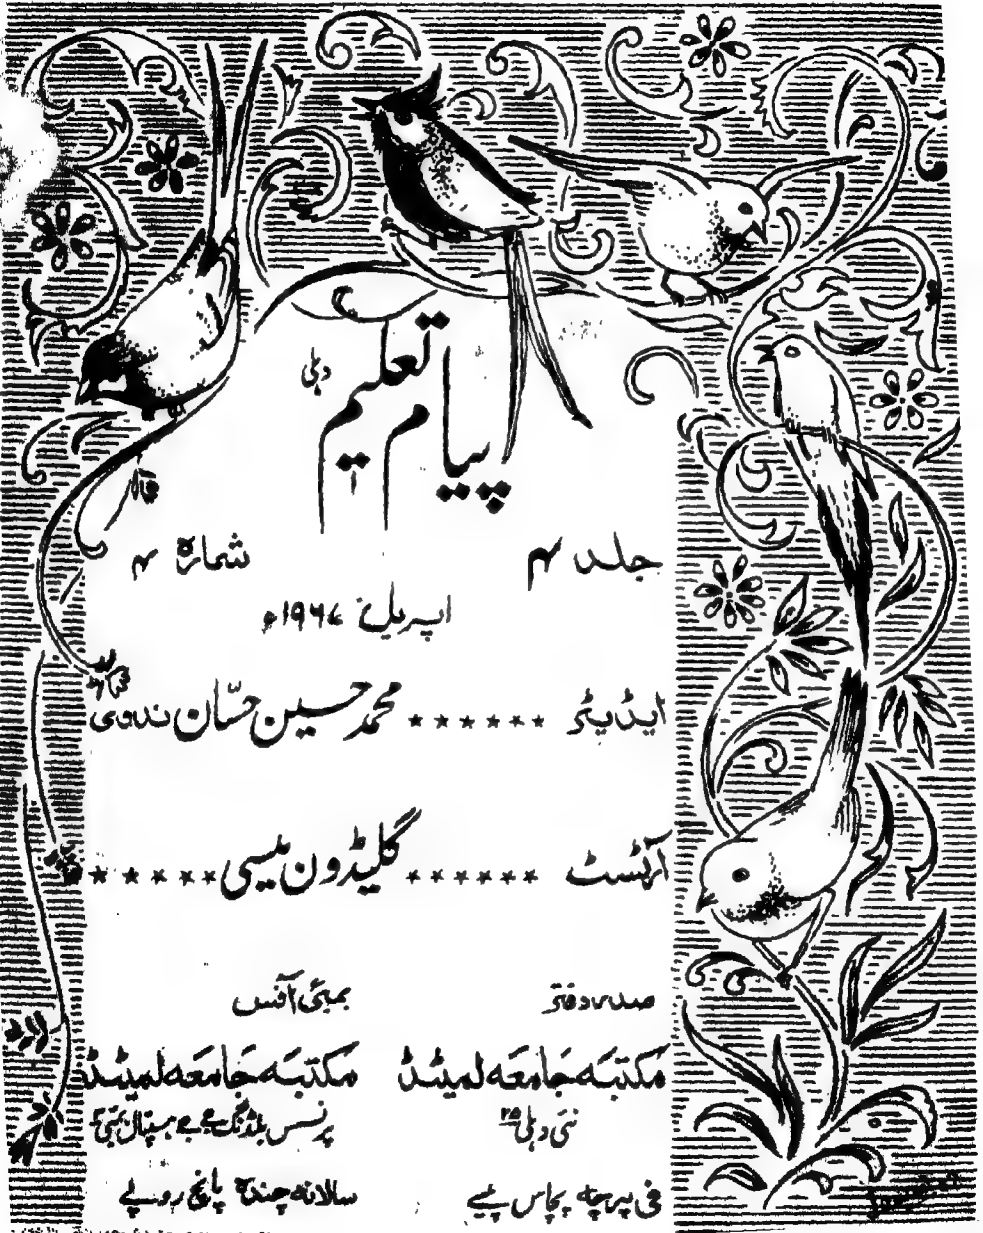 پیام تعلیم دہلی
جلد ۴ شمارہ ۴
اپریل ۱۹۶۷ء
ایڈیٹر ****** محمد حسین حسّان ندوی
آرٹسٹ ****** گلیڈون میسی *****
صدر دفتر
مکتبہ جامعہ لمیٹڈ
نئی دہلی ۲۵
فی پرچہ پچاس پیسے
بمبئی آفس
مکتبہ جامعہ لمیٹڈ
پرنسس بلڈنگ جے جے ہسپتال بمبئی
سالانہ چندہ پانچ روپے